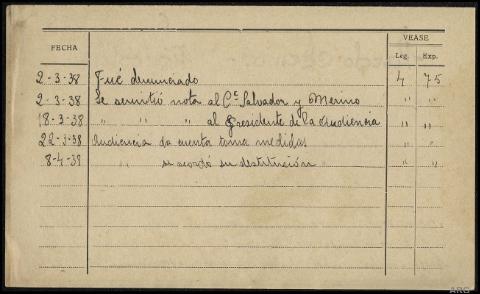 FECHA
VEASE
Leg. Exp.
2-3-38 Fué denunciado 4 75
2-3-38 Se remitió nota al Cº Salvador y Merino " "
18-3-38 " " " al Presidente de la Audiencia " "
22-3-38 Audiencia da cuenta toma medidas " "
8-4-38 " se acordó su destitución " "
ARG